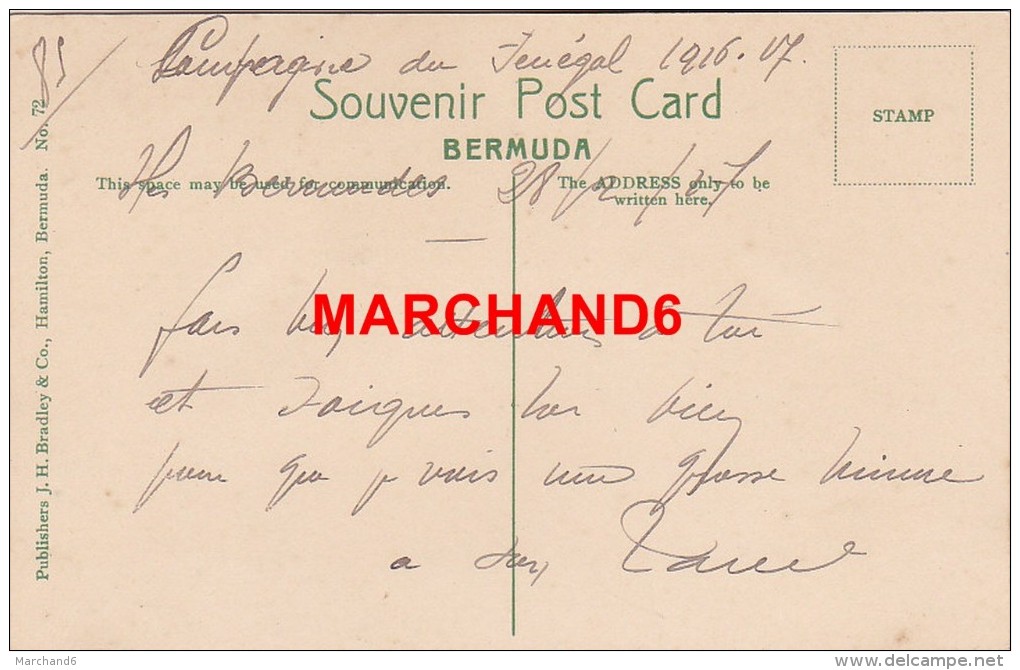 85/
Campagne du Sénégal 1916.17.
Souvenir Post Card
BERMUDA
STAMP
Iles Bermudes 28/2/17
This space may be used for communication.
The ADDRESS only to be
written here.
Publishers J. H. Bradley & Co., Hamilton, Bermuda. No. 72
MARCHAND6
fais bien attention à toi
et soigne toi bien
pour que je vois une grosse
a
Marchand6
www.delcampe.net